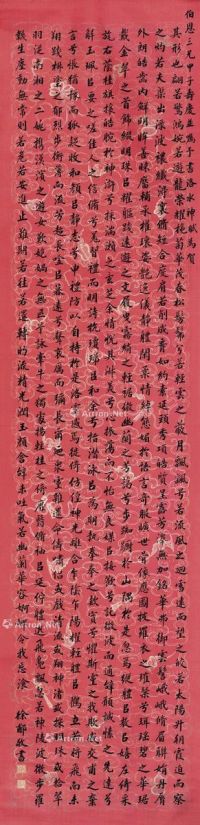 伯恩三兄甲子壽慶並寫予書洛水神賦為賀
其形也翩若驚鴻婉若遊龍榮曜秋菊華茂春松髣髴兮若輕雲之蔽月飄颻兮若流風之迴雪遠而望之皎若太陽升朝霞迫而察
之灼若芙蕖出淥波穠纖得衷脩短合度肩若削成腰如約素延頸秀項皓質呈露芳澤無加鉛華弗御雲髻峨峨脩眉聯娟丹脣
外朗皓齒內鮮明眸善睞靨輔承權瓌姿豔逸儀靜體閑柔情綽態媚於語言奇服曠世骨像應圖披羅衣之璀粲兮珥瑤碧之華琚
戴金翠之首飾綴明珠以耀軀踐遠遊之文履曳霧綃之輕裾微幽蘭之芳藹兮步踟躕於山隅於是忽焉縱體以遨以嬉左倚采
旄右蔭桂旗攘皓腕於神滸兮採湍瀨之玄芝余情悅其淑美兮心振蕩而不怡無良媒以接歡兮託微波而通辭願誠素之先達兮
解玉珮以要之嗟佳人之信脩兮羌習禮而明詩抗瓊珶以和予兮指潛淵以為期執拳拳之款實兮懼斯靈之我欺感交甫之棄
言兮悵猶豫而狐疑收和顏以靜志兮申禮防以自持於是洛靈感焉徙倚傍徨神光離合乍陰乍陽擢輕軀以鶴立若將飛而未
翔踐椒塗之郁烈步蘅薄而流芳超長吟以永慕兮聲哀厲而彌長爾迺眾靈雜遝命儔嘯侶或戲清流或翔神渚或採明珠或拾翠
羽從南湘之二妃攜漢濱之遊女歎匏瓜之無匹兮詠牽牛之獨處揚輕袿之猗靡兮翳脩袖以延佇體迅飛鳧飄忽若神陵波微步羅
襪生塵動無常則若危若安進止難期若往若還轉眄流精光潤玉顏含辭未吐氣若幽蘭華容婀娜令我忘湌 徐郙敬書
Artron.Net
Artron.Net